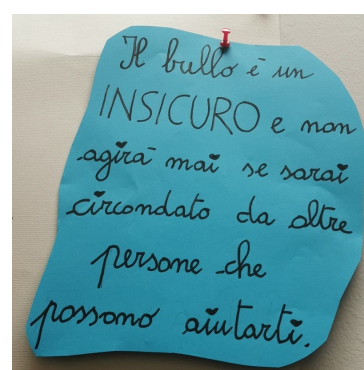 Il bullo è un
INSICURO e non
agirà mai se sarai
circondato da altre
persone che
possono aiutarti.